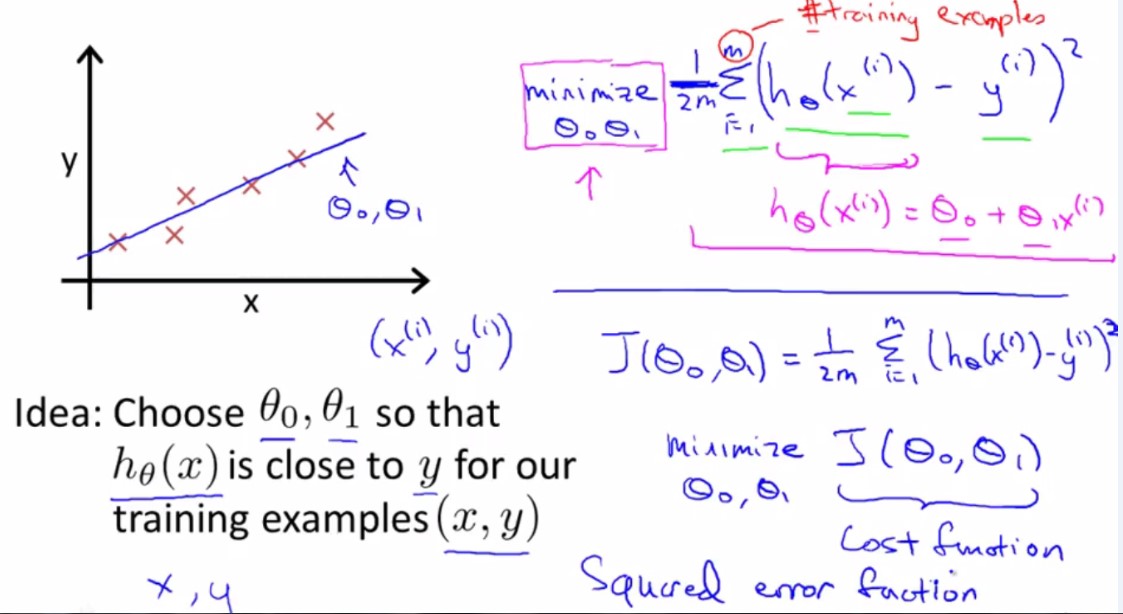 #training examples
minimize 1/2m Σ_{i=1}^{m} (h_θ(x^(i)) - y^(i))²
θ₀ θ₁
h_θ(x^(i)) = θ₀ + θ₁x^(i)
y
θ₀, θ₁
x
(x^(i), y^(i))
J(θ₀, θ₁) = 1/2m Σ_{i=1}^{m} (h_θ(x^(i)) - y^(i))²
Idea: Choose θ₀, θ₁ so that
h_θ(x) is close to y for our
training examples (x, y)
x, y
minimize J(θ₀, θ₁)
θ₀, θ₁
Cost function
Squared error faction